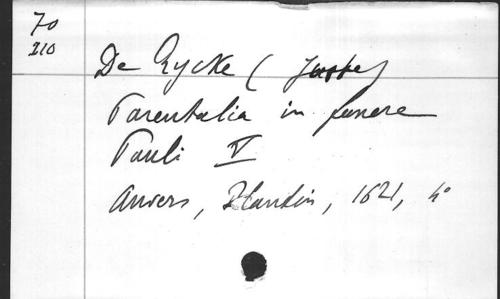 70
210
De Rycke (Josse)
Parentalia in funere
Pauli V
Anvers, Plantin, 1621, 4°